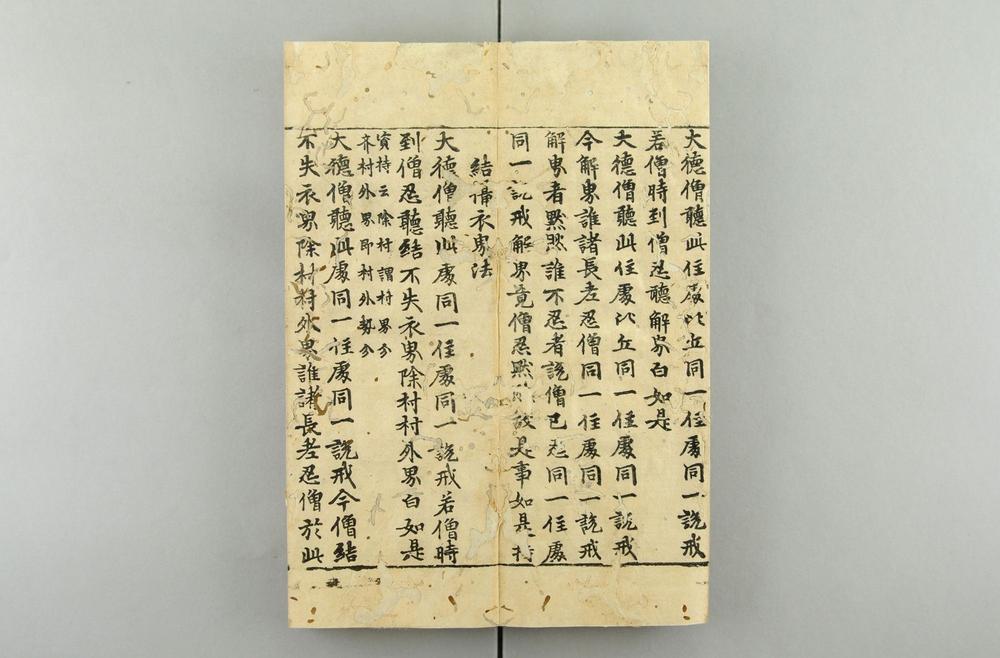 大德僧聽此住處比丘同一住處同一說戒
若僧時到僧忍聽解界白如是
大德僧聽此住處比丘同一住處同一說戒
今解界誰諸長老忍僧同一住處同一說戒
解界者默然誰不忍者說僧已忍同一住處
同一說戒解界竟僧忍默然故是事如是持
結攝衣界法
大德僧聽此處同一住處同一說戒若僧時
到僧忍聽結不失衣界除村村外界白如是
資持云除村謂村界分
齐村外界即村外勢分
大德僧聽此處同一住處同一說戒今僧結
不失衣界除村村外界誰諸長老忍僧於此